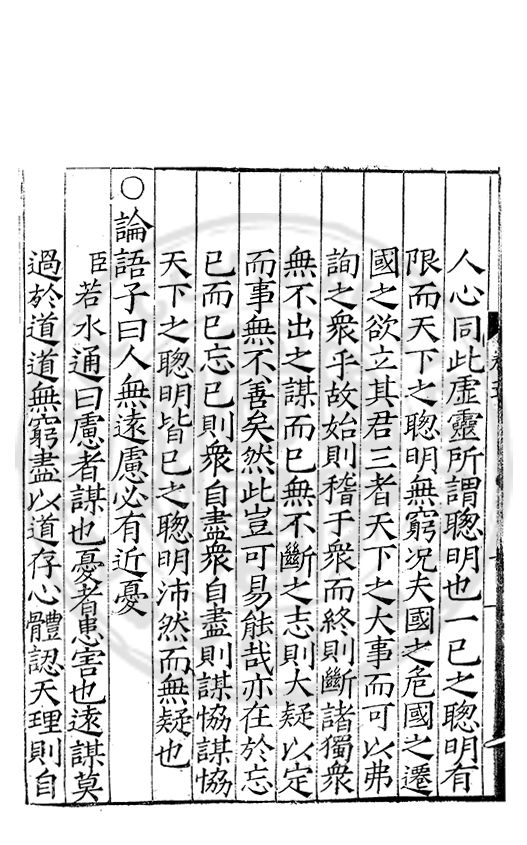 人心同此虛靈所謂聰明也一已之聰明有
限而天下之聰明無窮况夫國之危國之遷
國之欲立其君三者天下之大事而可以弗
詢之衆乎故始則稽于衆而終則斷諸獨衆
無不出之謀而已無不斷之志則大疑以定
而事無不善矣然此豈可易能哉亦在於忘
已而已忘已則衆自盡衆自盡則謀恊謀恊
天下之聰明皆已之聰明沛然而無疑也
○論語子曰人無遠慮必有近憂
臣若水通曰慮者謀也憂者患害也遠謀莫
過於道道無窮盡以道存心體認天理則自